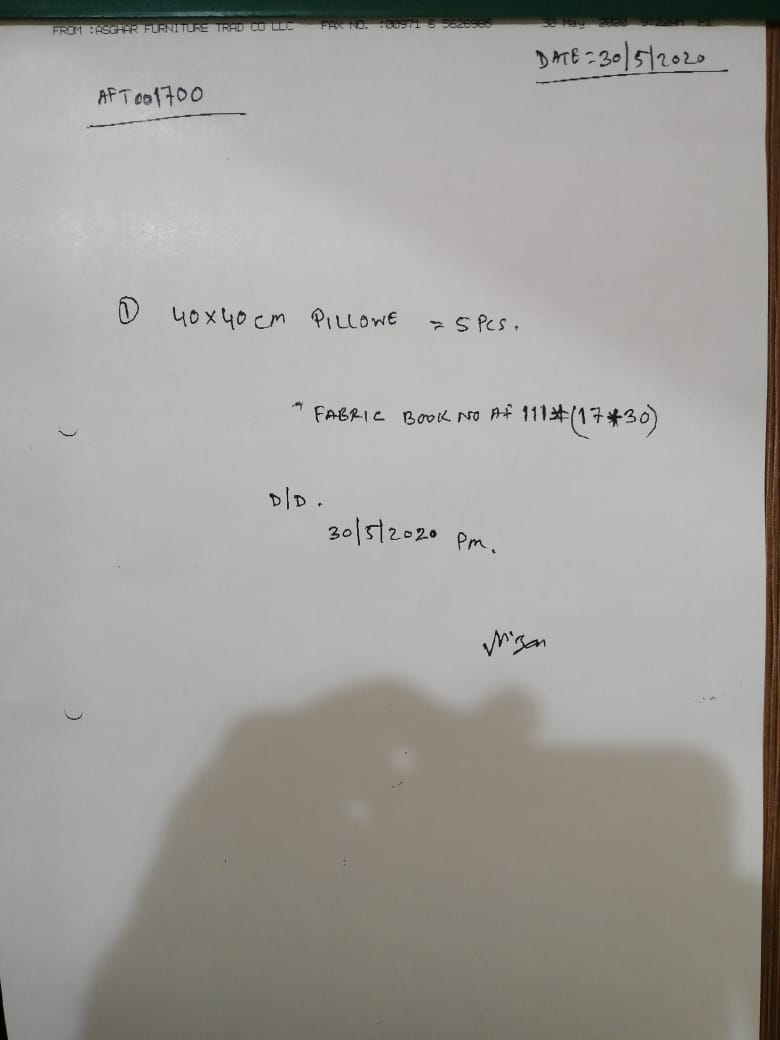 FROM :ASGHAR FURNITURE TRAD CO LLC FAX NO. :00971 6 5626986 30 May 2020 P1
DATE = 30/5/2020
AFT001700
① 40x40cm PILLOWE = 5 Pcs.
* FABRIC BOOK NO Af 111#(17*30)
D/D.
30/5/2020 Pm.